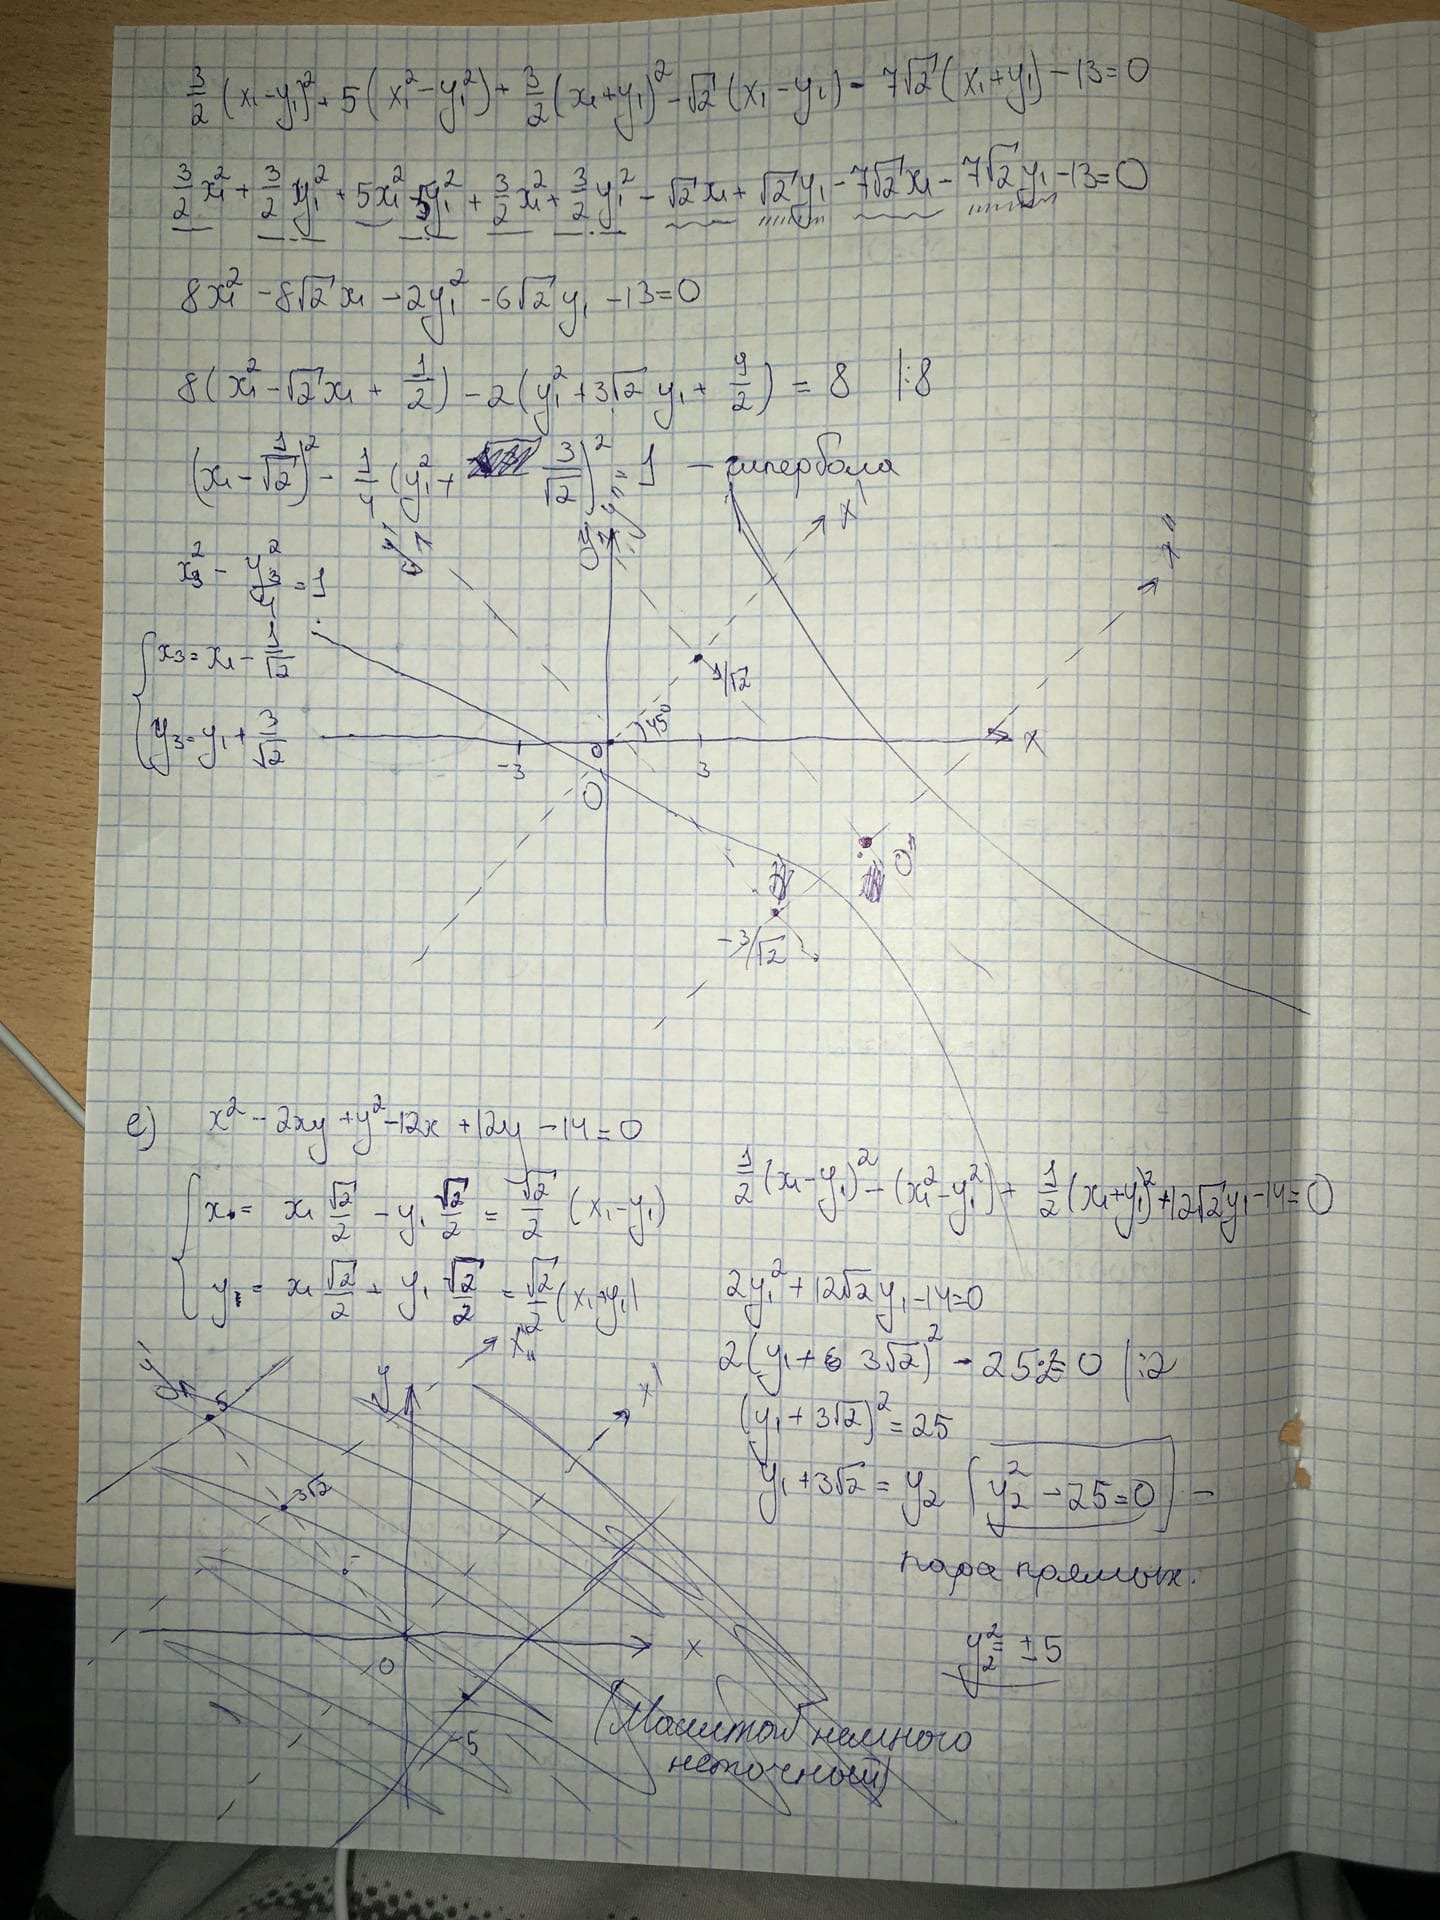 3/2 (x₁-y₁)² + 5(x₁²-y₁²) + 3/2 (x₁+y₁)² - √2 (x₁-y₁) - 7√2 (x₁+y₁) - 13 = 0
3/2 x₁² + 3/2 y₁² + 5x₁² - 5y₁² + 3/2 x₁² + 3/2 y₁² - √2 x₁ + √2 y₁ - 7√2 x₁ - 7√2 y₁ - 13 = 0
8x₁² - 8√2 x₁ - 2y₁² - 6√2 y₁ - 13 = 0
8(x₁² - √2 x₁ + 1/2) - 2(y₁² + 3√2 y₁ + 9/2) = 8 |:8
(x₁ - 1/√2)² - 1/4 (y₁² + 3/√2)² = 1 - гипербола
x₃² - y₃²/4 = 1
{ x₃ = x₁ - 1/√2
y₃ = y₁ + 3/√2
y'
y
y''
x'
x''
1/√2
45°
-3
0
3
x
O'
O''
-3/√2
е) x² - 2xy + y² - 12x + 12y - 14 = 0
{ x = x₁ √2/2 - y₁ √2/2 = √2/2 (x₁-y₁)
y = x₁ √2/2 + y₁ √2/2 = √2/2 (x₁+y₁)
1/2 (x₁-y₁)² - (x₁²-y₁²) + 1/2 (x₁+y₁)² + 12√2 y₁ - 14 = 0
2y₁² + 12√2 y₁ - 14 = 0
2(y₁ + 6 3√2)² - 25·2 = 0 |:2
(y₁ + 3√2)² = 25
y₁ + 3√2 = y₂ [y₂² - 25 = 0] -
пара прямых.
y₂² = ± 5
y'
5
y
x'
3√2
0
x
-5
(Масштаб немного
неточный)